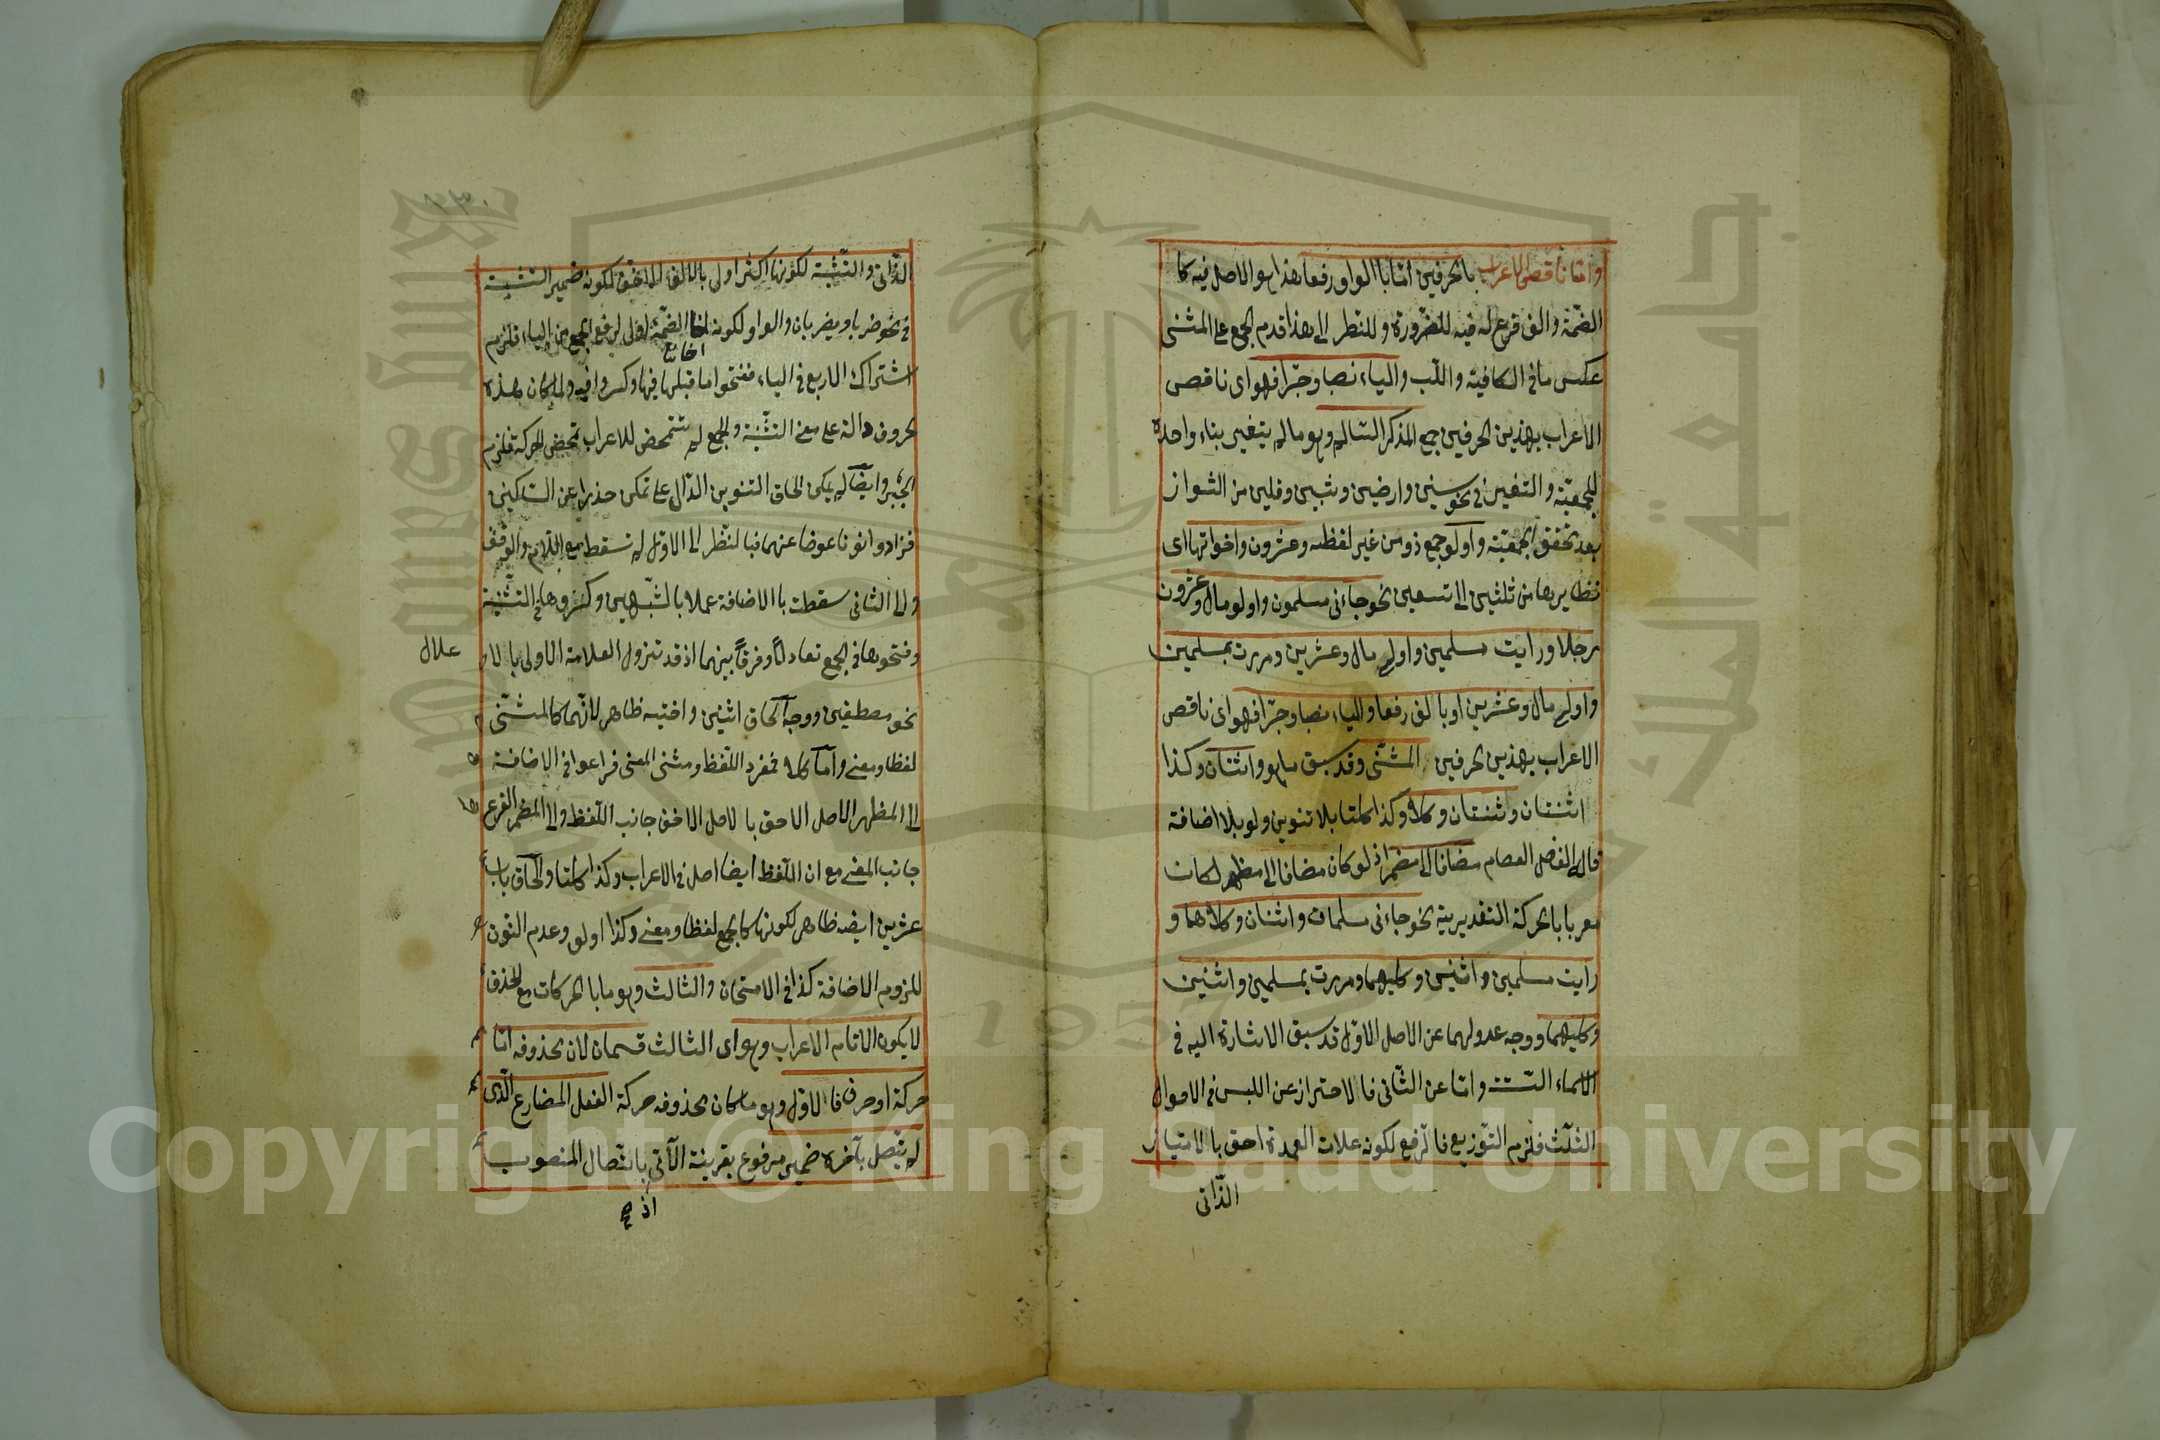 واما ناقص الاعراب بالحرفين اما بالواو رفعا هذا هو الاصل فيه كا
الضمة والف فرع له فيه للضرورة وللنظر الى هذا قدم الجمع على المثنى
عكس ما في الكافية واللب والياء نصبا وجرا فهو اى ناقص
الاعراب بهذين الحرفين جمع المذكر السالم وهو ما لم يتغير بناء واحده
للجمعية والتغيير في نحو سنين وارضين وثبين وقلين من الشواز
بعد تحقق الجمعية واولو جمع ذو من غير لفظه وعشرون واخواتها اى
نظايرها من ثلثين الى تسعين نحو جاءنى مسلمون واولو مال وعشرون
رجلا ورايت مسلمين واولى مال وعشرين ومررت بمسلمين
واولى مال وعشرين او بالف رفعا والياء نصبا وجرا فهو اى ناقص
الاعراب بهذين الحرفين المثنى وقد سبق ما هو واثنان وكذا
اثنتان وثنتان وكلا وكذا كلتا بلا تنوين ولو بلا اضافة
قاله الفاضل العصام مضافا الى مضمر اذ لو كان مضافا الى مظهر لكان
معربا بالحركة التقديرية نحو جاءنى مسلمان واثنان وكلاهما و
رايت مسلمين واثنين وكليهما ومررت بمسلمين واثنين
وكليهما ووجه عدولهما عن الاصل الاول قد سبق الاشارة اليه في
الاسماء الستة واما عن الثانى فالاحتراز عن اللبس في الاحوال
الثلث فلزم التوزيع فالرفع لكونه علامت العمدة احق بالامتياز
الذاتى
الذاتى والتثنية لكونها اكثر اولى بالالف الاخف لكونه ضمير التثنية
في نحو ضربا ويضربان والواو لكونه اخا الضمة اولى لرفع الجمع من الياء فلزم
اخا نع
اشتراك الاربع في الياء ففتحوا ما قبلها فيها وكسروا فيه ولما كان هذه
الحروف دالة على معنى التثنية والجمع لم تتمحض للاعراب تمحض الحركة فلزم
الجبر وايضا لم يكن الحاق التنوين الدال على تمكن حذرا عن الساكنين
فزادوا نونا عوضا عنهما فبالنظر الى الاول لم تسقط مع اللام والوقف
والى الثانى سقطت بالاضافة عملا بالشبهين وكسروها في التثنية
وفتحوها في الجمع تعادلا وفرقا بينهما اذ قد تزول العلامة الاولى بالا
علال
نحو مصطفين ووجه الحاق اثنين واختيه ظاهر لانهما كالمثنى
لفظا ومعنى واما كلا فمفرد اللفظ ومثنى المعنى فراعوا في الاضافة
الى المظهر الاصل الاحق بالاصل الاخف جانب اللفظ والى المضمر الفرع
جانب المعنى مع ان اللفظ ايضا اصل في الاعراب وكذا كلتا والحاق باب
عشرين ايضه ظاهر لكونها كالجمع لفظا ومعنى وكذا اولو وعدم النون
للزوم الاضافة كذا في الامتحان والثالث وهو ما بالحركات مع الحذف
لا يكون الا تام الاعراب وهو اى الثالث قسمان لان محذوفه اما
حركة او حرف فالاول وهو ما كان محذوفه حركة الفعل المضارع الذى
لم يتصل بآخره ضمير مرفوع بقرينة الآتى باتصال المنصوب